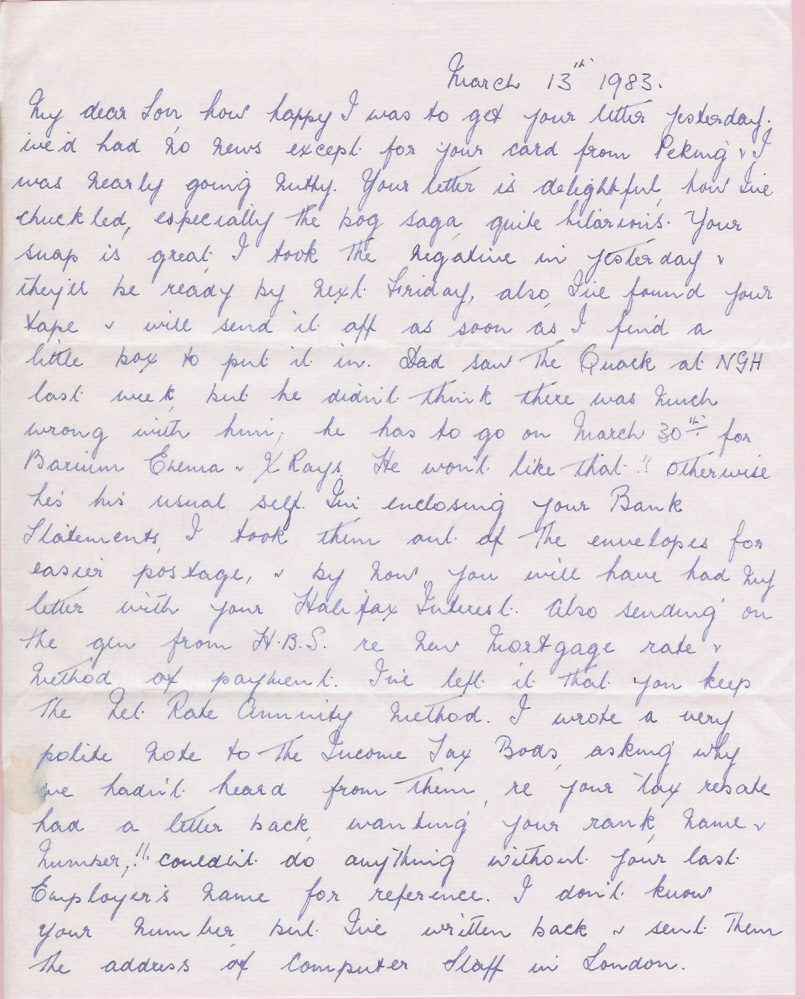 March 13th 1983.
My dear Son how happy I was to get your letter yesterday.
we'd had no news except for your card from Peking & I
was nearly going nutty. Your letter is delightful, how I've
chuckled, especially the bog saga, quite hilarious. Your
snap is great I took the negative in yesterday &
they'll be ready by next Friday, also, I've found your
tape & will send it off as soon as I find a
little box to put it in. Dad saw the Quack at NGH
last week, but he didn't think there was much
wrong with him, he has to go on March 30th for
Barium Enema & X Rays, He won't like that!! Otherwise
he's his usual self. I'm enclosing your Bank
Statements, I took them out of the envelopes for
easier postage, & by now you will have had my
letter with your Halifax Interest. Also sending on
the gen from H.B.S. re new Mortgage rate &
method of payment. I've left it that you keep
the Net Rate Annuity method. I wrote a very
polite note to the Income Tax Bods, asking why
we hadn't heard from them, re your tax rebate
had a letter back, wanting your rank, name &
number,!! couldn't do anything without your last
Employer's name for reference. I don't know
your number but I've written back & sent them
the address of Computer Staff in London.